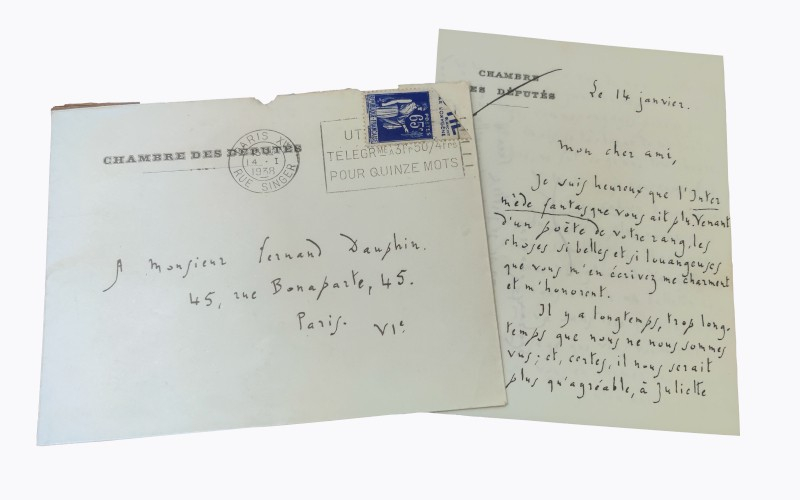 CHAMBRE DES DÉPUTÉS
PARIS
14 - 1
1938
RUE SINGER
TELEGRMES 3F50/4F75
POUR QUINZE MOTS
65
A Monsieur Fernand Dauphin.
45, rue Bonaparte, 45.
Paris.
VIe.
CHAMBRE
DES DÉPUTÉS
Le 14 janvier.
Mon cher ami,
Je suis heureux que l'Inter
mède fantasque vous ait plu. Venant
d'un poëte de votre rang, les
choses si belles et si louangeuses
que vous m'en écrivez me charment
et m'honorent.
Il y a longtemps, trop long-
temps que nous ne nous sommes
vus ; et, certes, il nous serait
plus qu'agréable, à Juliette